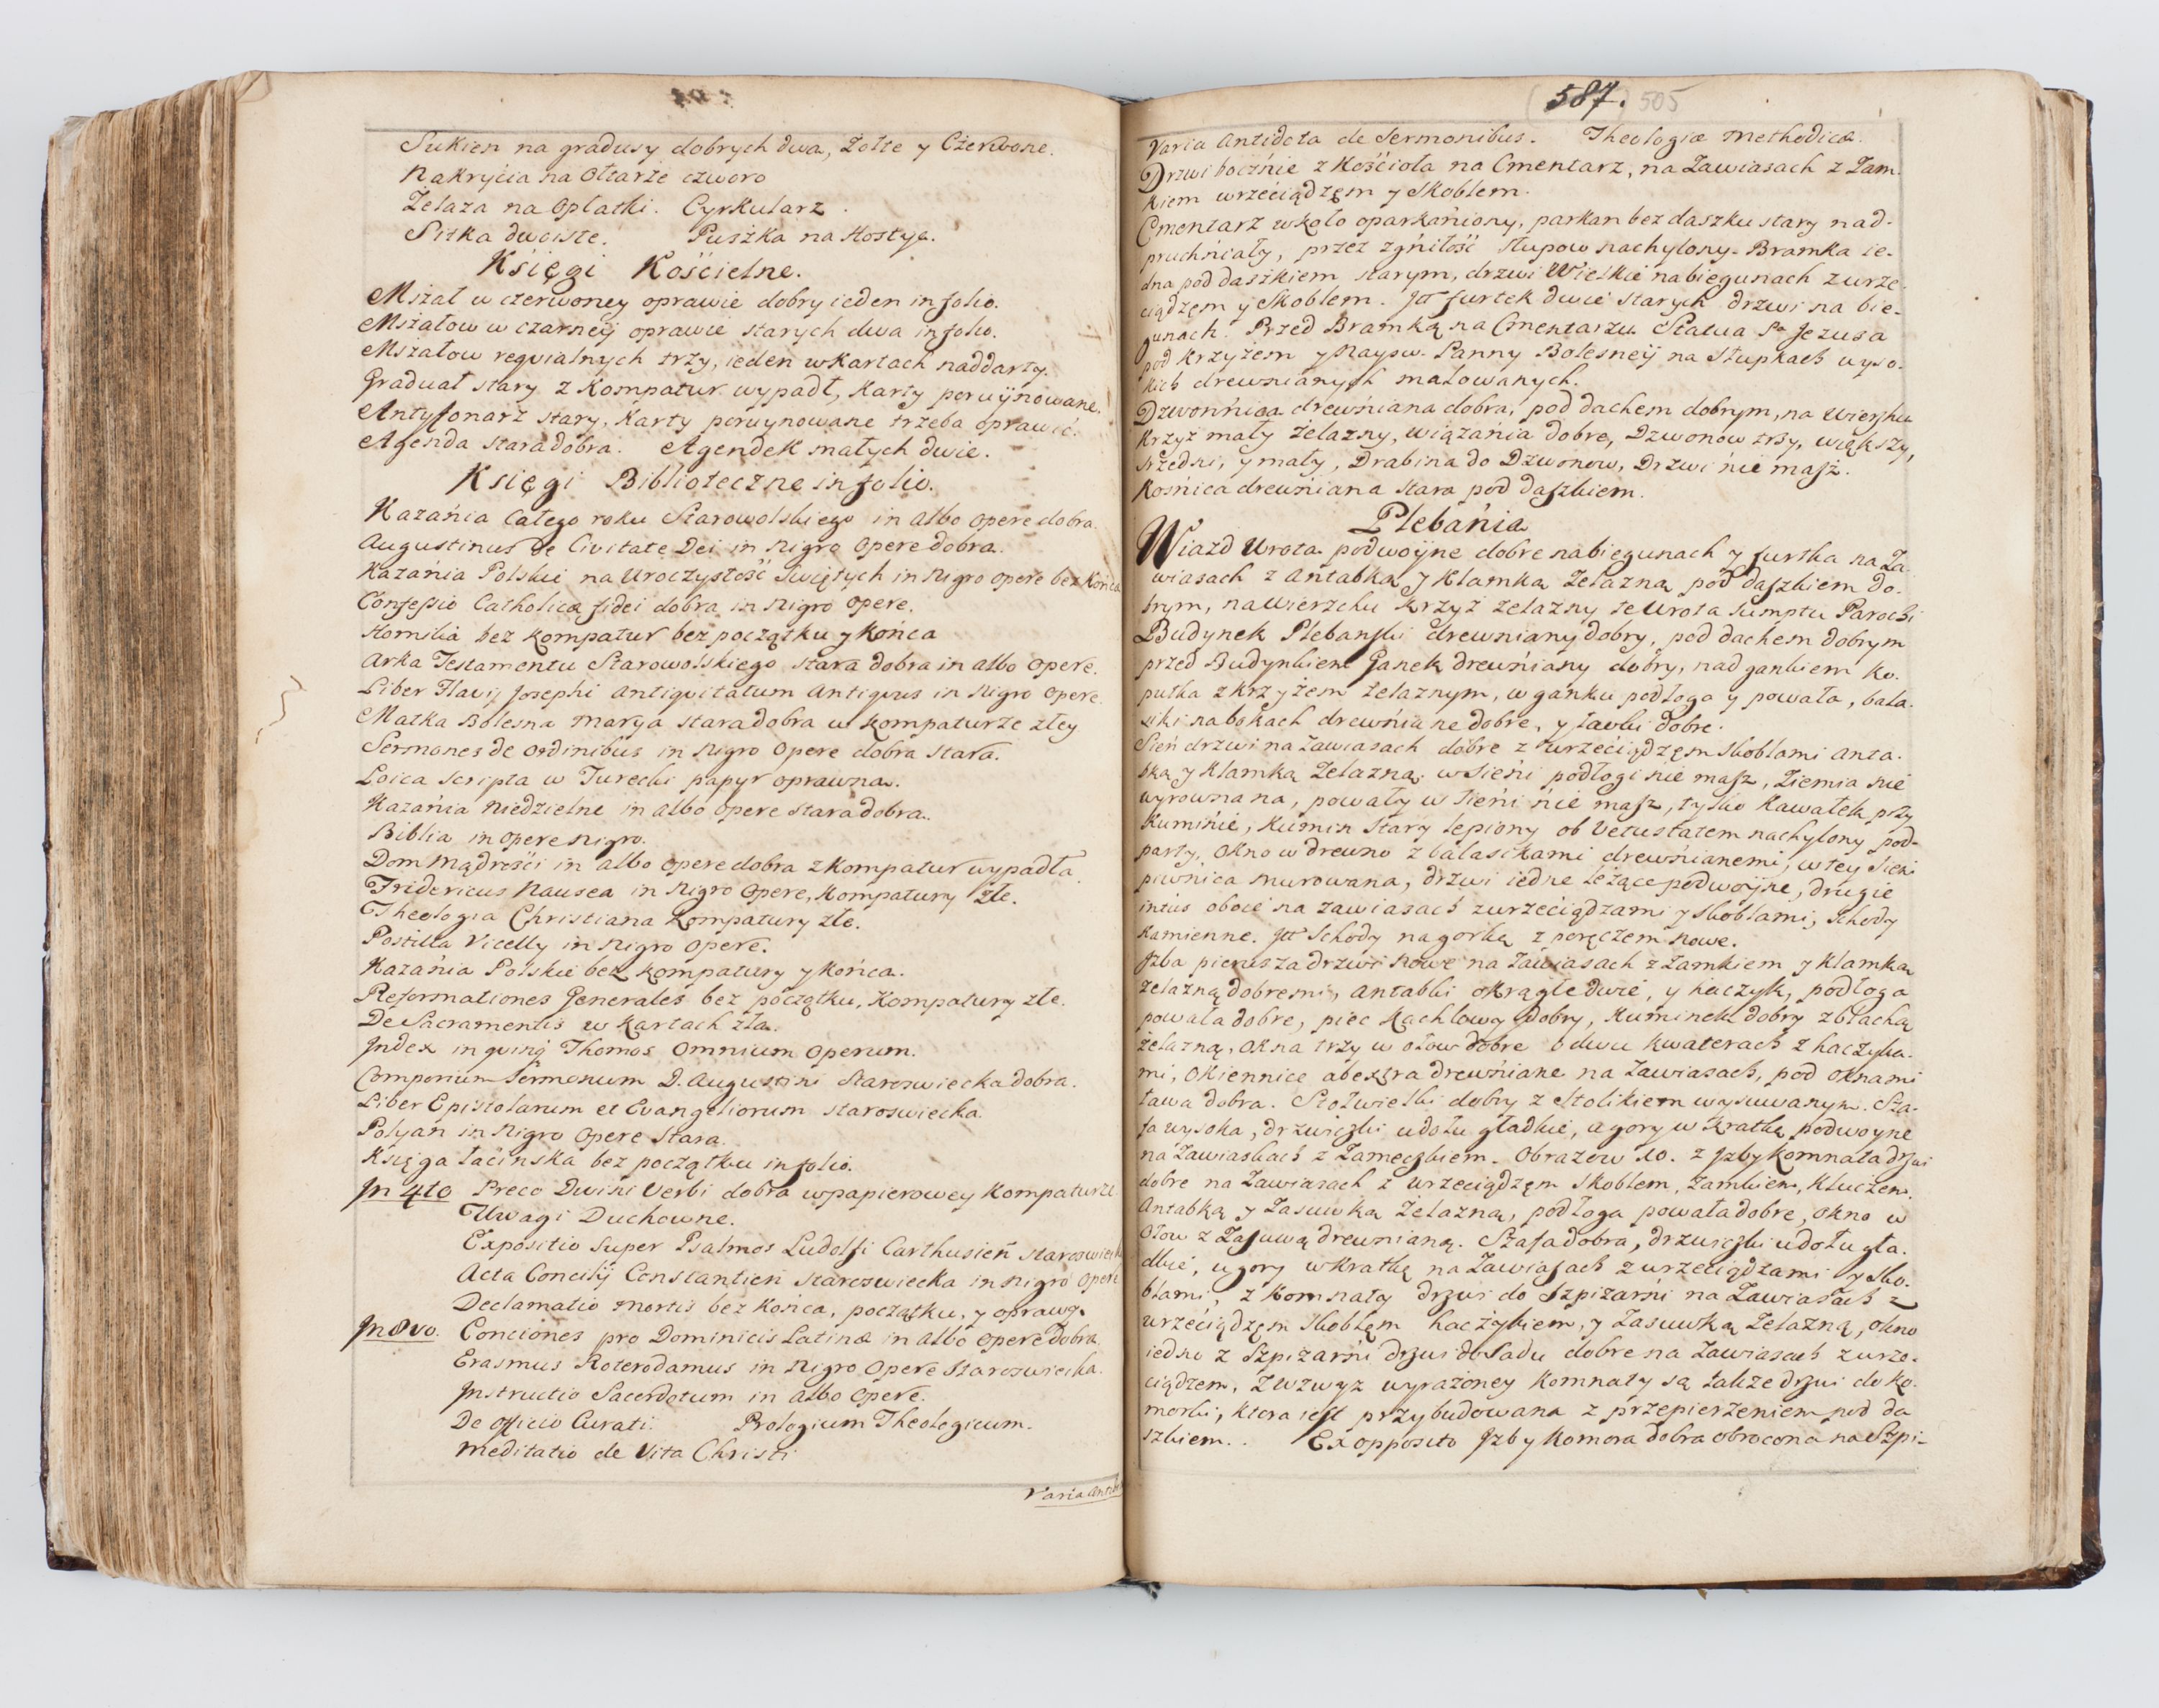 Sukien na gradusy dobrych dwa, Żołte y Czerwone.
Nakryćia na Ołtarże czworo
Żelaza na Opłatki. Cyrkularz.
Sitka dwoiste. Puszka na Hostye.
Księgi Kościelne.
Mszał w czerwoney oprawie dobry ieden in folio.
Mszałow w czarneij oprawie starych dwa in folio.
Mszałow reqvialnych trzy, ieden w Kartach naddarty.
Graduał stary z Kompatur wypadł, Karty poruijnowane.
Antyfonarz stary, Karty poruynowane trzeba oprawić.
Agenda stara dobra. Agendek małych dwie.
Księgi Biblioteczne in folio.
Kazańia całego roku Starowolskiego in albo opere dobra.
Augustinus de Civitate Dei in Nigro Opere dobra.
Kazańia Polskie na Uroczystość Swiętych in Nigro opere bez Końca
Confessio Catholicæ fidei dobra in Nigro opere.
Homilia bez kompatur bez początku y Końca
Arka Testamentu Starowolskiego stara dobra in albo opere.
Liber Flavij Josephi Antiqvitatum Antiqvus in Nigro Opere.
Matka Bolesna Marya stara dobra w kompaturze złey
Sermones de Ordinibus in Nigro Opere dobra stara.
Loica scripta w Turecki papyr oprawna.
Kazańia Niedzielne in albo opere stara dobra.
Biblia in opere Nigro.
Dom Mądrości in albo opere dobra z Kompatur wypadła.
Fridericus Nausea in Nigro Opere, Kompatury złe.
Theologia Christiana Kompatury złe.
Postilla Vicelly in Nigro Opere.
Kazańia Polskie bez kompatury y Końca.
Reformationes Generales bez początku, Kompatury złe.
De Sacramentis w Kartach zła.
Index in qving Thomos Omnium Operum.
Sermonum D. Augustini Staroswiecka dobra.
Liber Epistolarum et Evangeliorum staroswiecka.
Polyan in Nigro Opere Stara.
Księga łacinska bez początku in folio.
In 4to Preco Divini Verbi dobra w papierowey Kompaturze
Uwagi Duchowne.
Expositio Super Psalmos Ludolfi Carthusień staroswiecka
Acta Concilij Constantień staroswiecka in Nigro Opere
Declamatio Mortis bez Końca, początku, y oprawy.
In 8vo. Conciones pro Dominicis Latinæ in albo opere dobra.
Erasmus Roterodamus in Nigro Opere Staroswiecka.
Instructio Sacerdotum in albo Opere.
De officio Curati. Prologium Theologicum.
Meditatio de Vita Christi
Varia Antido
587. (505
Varia Antidota de Sermonibus. Theologiæ Methodicæ.
Drzwi boczńie z Kośćioła na Cmentarz, na Zawiasach z Zam-
kiem wrzećiądzęm y Skoblem.
Cmentarz wkoło oparkańiony, parkan bez daszku stary nad-
pruchńiały, przez zgńiłość słupow nachylony. Bramka ie-
dna pod daszkiem starym, drzwi Wielkie na biegunach z wrze-
ciądzęm y Skoblem. Itt furtek dwie starych drzwi na bie-
gunach. Przed Bramką na Cmentarzu Statua Pa Jezusa
pod krzyżem y Nayśw. Panny Bolesneij na Słupkach wyso-
kich drewnianych malowanych.
Dzwonńica drewńiana dobra, pod dachem dobrym, na wierzhu
krzyż mały żelazny, wiązańia dobre, Dzwonow trzy, większy,
srzedni, y mały, Drabina do Dzwonow, Drzwi ńie masz.
Kosńica drewńiana stara pod daszkiem.
Plebańia
Wiazd Wrota podwoyne dobre na biegunach y furtka na Za-
wiasach z Antabką y Klamką Żelazną pod daszkiem do-
brym, na wierzchu krzyż żelazny te Wrota sumptu Parochi
Budynek Plebanski drewniany dobry, pod dachem dobrym
przed Budynkiem Ganek drewńiany dobry, nad gankiem Ko-
pułka z krzyżem żelaznym, w ganku podłoga y powała, bala-
siki na bokach drewńiane dobre, y ławki dobre.
Sień drzwi na zawiasach dobre z wrzećiądzęm skoblami anta-
bką y Klamką Żelazną. w Sieńi podłogi nie masz, Ziemia nie
wyrownana, powały w Sieńi ńie masz, tylko Kawałek przy
Kumińie, Kumin stary lepiony ob Vetustatem nachylony pod-
party. Okno w drewno z balasikami drewńianemi, w tey Sieni
piwnica murowana, drzwi iedne leżące podwoyne, drugie
intus oboie na zawiasach z wrzećiądzami y skoblami, Schody
Kamienne. Itt Schody na gorkę z poręczem Nowe.
Izba pierwsza drzwi Nowe na Zawiasach z Zamkiem y Klamką
żelazną dobremi, Antabki okrągłe dwie, y haczyk, podłoga
powała dobre, piec kachlowy dobry, Kuminek dobry z blachą
żelazną, okna trzy w ołow dobre o dwu kwaterach z haczyka-
mi, Okiennice ab extra drewńiane na Zawiasach, pod oknami
ława dobra. Stoł wielki dobry z Stolikiem wysuwanym. Sza-
fa wysoka, drzwiczki u dołu gładkie, u gory w kratkę podwoyne
na Zawiaskach z Zameczkiem. Obrazow 10. z Izby Komnata drzwi
dobre na Zawiasach z wrzeciądzęm Skoblem, Zamkiem, Kluczem.
Antabką y Zasuwką Żelazną, podłoga powała dobre, okno w
Ołow z Zasuwą drewnianą. Szafa dobra, drzwiczki u dołu gła-
dkie, u gory w kratkę na Zawiasach z wrzeciądzami y sko-
blami, z Komnaty drzwi do Szpiżarni na Zawiasach z
wrzeciądzęm skoblęm haczykiem, y Zasuwką Żelazną, okno
iedno z Szpizarni drzwi do Sadu dobre na Zawiasach z wrze-
ciądzem, Z wzwyz wyrażoney Komnaty są także drzwi do ko-
morki, ktora iest przybudowana z przepierzeniem pod da
szkiem. Ex opposito Izby Komora dobra obrocona na Szpi-